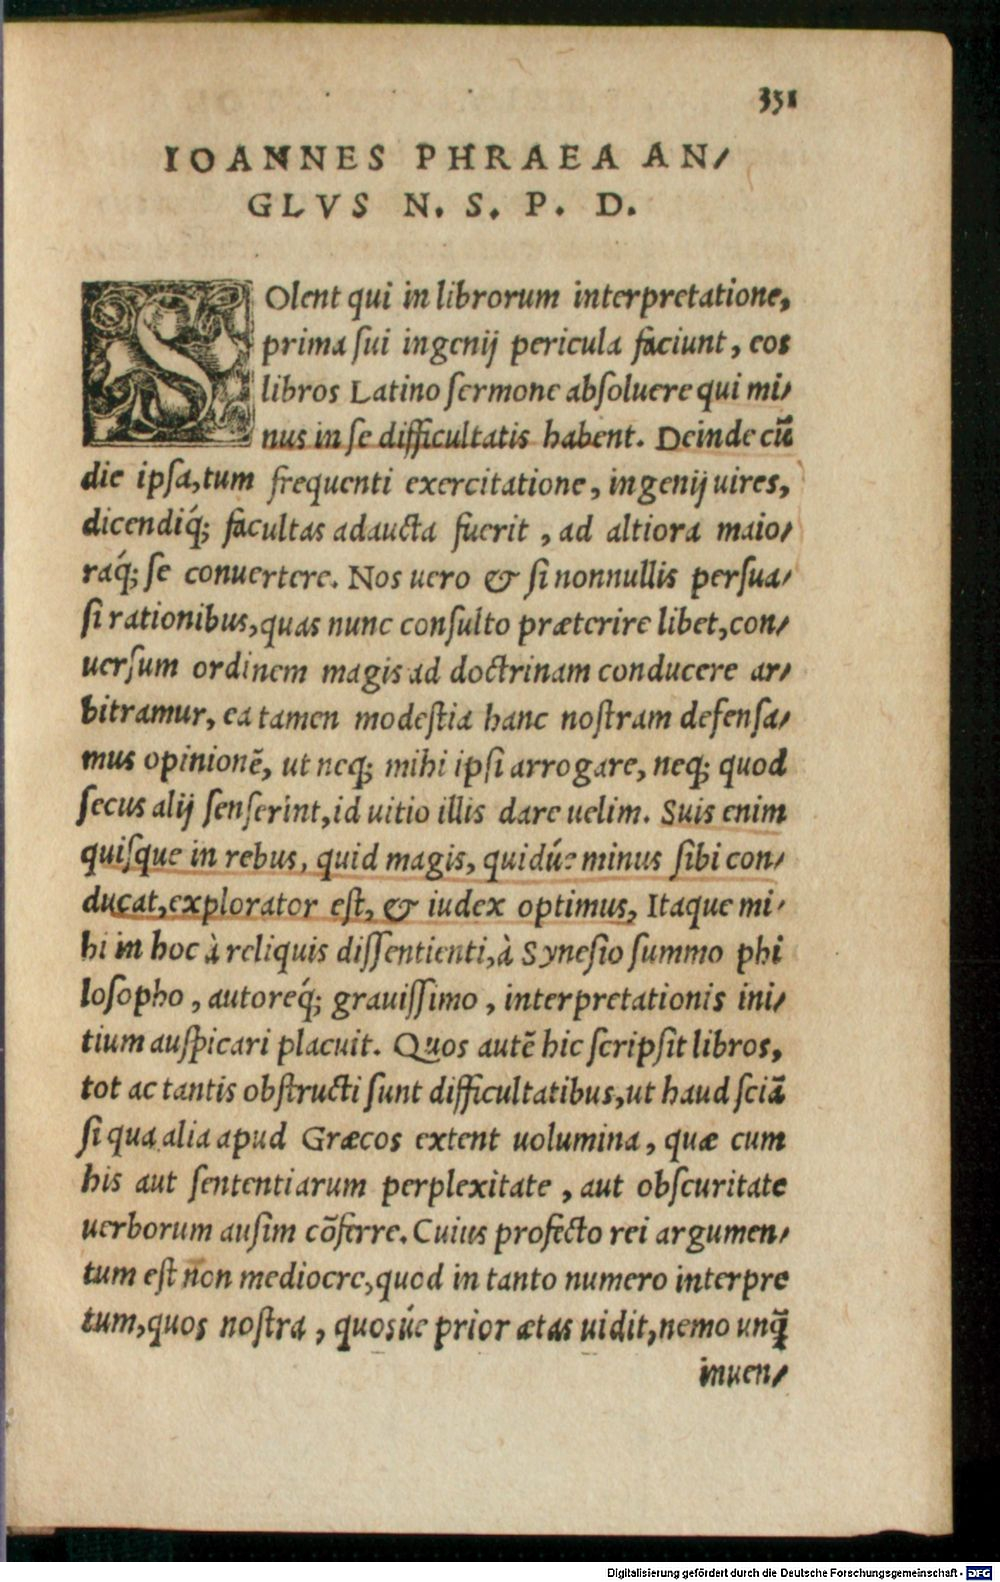 351
IOANNES PHRAEA AN/
GLVS N. S. P. D.
SOlent qui in librorum interpretatione,
prima sui ingenij pericula faciunt, eos
libros Latino sermone absoluere qui mi/
nus in se difficultatis habent. Deinde cū
die ipsa, tum frequenti exercitatione, ingenij uires,
dicendiq́; facultas adaucta fuerit, ad altiora maio/
raq́; se conuertere. Nos uero & si nonnullis persua/
si rationibus, quas nunc consulto præterire libet, con/
uersum ordinem magis ad doctrinam conducere ar/
bitramur, ea tamen modestia hanc nostram defensa/
mus opinionē, ut neq; mihi ipsi arrogare, neq; quod
secus alij senserint, id uitio illis dare uelim. Suis enim
quisque in rebus, quid magis, quidúe minus sibi con/
ducat, explorator est, & iudex optimus, Itaque mi/
hi in hoc à reliquis dissentienti, à Synesio summo phi
losopho, autoreq́; grauissimo, interpretationis ini/
tium auspicari placuit. Quos autē hic scripsit libros,
tot ac tantis obstructi sunt difficultatibus, ut haud sciā
si qua alia apud Græcos extent uolumina, quæ cum
his aut sententiarum perplexitate, aut obscuritate
uerborum ausim cōferre. Cuius profecto rei argumen/
tum est non mediocre, quod in tanto numero interpre
tum, quos nostra, quosúe prior ætas uidit, nemo unq̄
inuen/
Digitalisierung gefördert durch die Deutsche Forschungsgemeinschaft - DFG